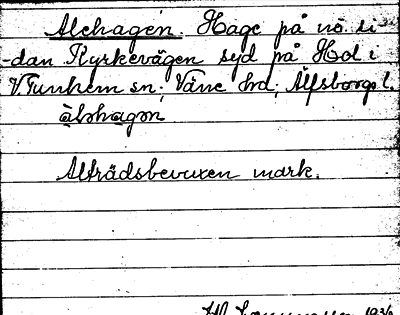 Alehagen. Hage på nö. si-
dan Kyrkevägen syd på Hol i
V Tunhem sn; Väne hrd; Älfsborgs l.
Alträdsbevuxen mark.
1936